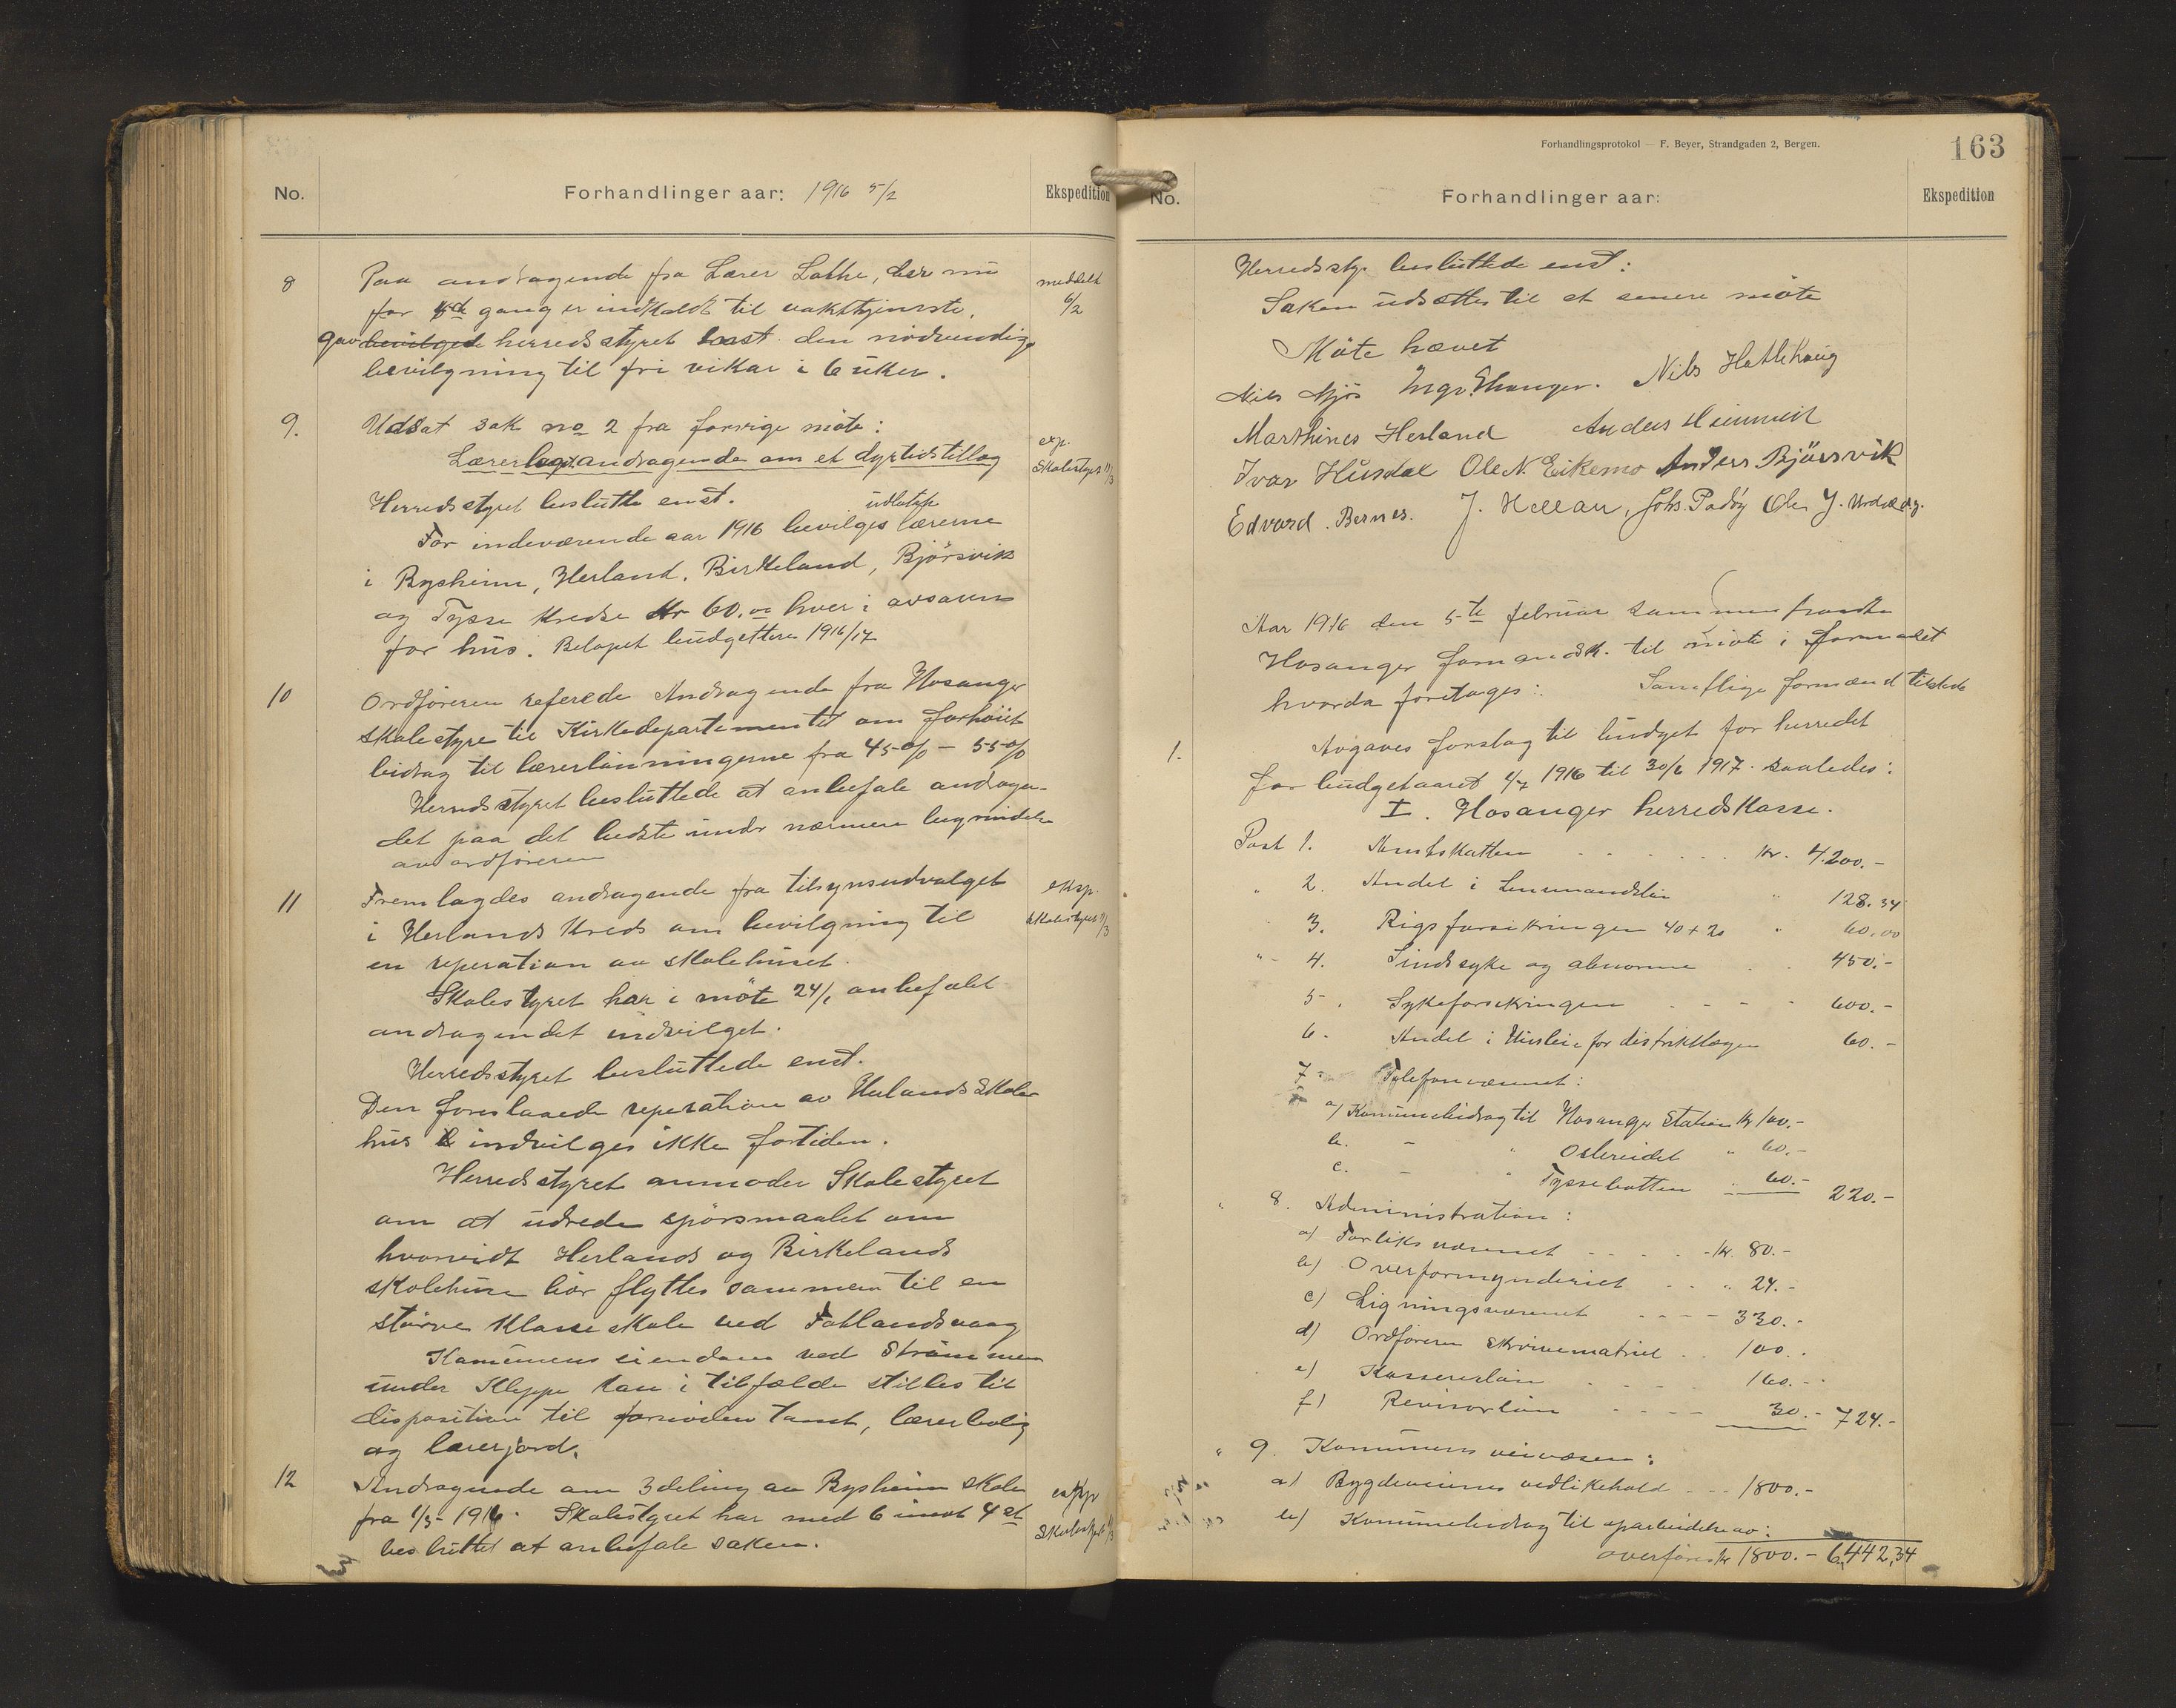 No.
Forhandlinger aar: 1916 5/2
Ekspedition
8 Paa andragende fra Lærer Lothe, der nu
for gang er indkaldt til vakttjeneste,
gav bevilgede herredsstyret enst. den nødvendige
bevilgning til fri vikar i 6 uker.
meddelt
6/2
9. Udsat sak no 2 fra forrige møte:
Lærerlags andragende om et dyrtidstillæg
exp.
Skolestyret 11/3
Herredsstyret beslutta enst.
For indeværende aar 1916 bevilges lærerne
i Rysheim, Herland, Birkeland, Bjørsvik
og Tysse kredse Kr 60.00 hver i avsavn
for hus. Beløpet budgetteres 1916/17
10 Ordføreren referede Andragende fra Hosanger
skolestyre til Kirkedepartementet om forhøiet
bidrag til lærerlønningerne fra 45% - 55%
Herredsstyret besluttede at anbefale andragen-
det paa det bedste under nærmere begrundelse
av ordføreren
11 Fremlagdes andragende fra tilsynsudvalget
i Herlands kreds om bevilgning til
en reperation av skolehuset.
eksp.
skolestyret 11/3
Skolestyret har i møte 24/1 anbefalet
andragendet indvilget.
Herredsstyret besluttede enst.
Den foreslaaede reperation av Herlands Skole-
hus indvilges ikke fortiden.
Herredsstyret anmoder Skolestyret
om at udrede spørsmaalet om
hvorvidt Herlands og Birkelands
skolehuse bør flyttes sammen til en
større Klasseskole ved Fatlandsvaag
Komunens eiendom ved Strømmen
under Kleppe kan i tilfælde stilles til
disposition til fornøden tomt, lærerbolig
og lærerjord.
12 Andragende om 3deling av Rysheim skole
fra 1/3- 1916. Skolestyret har med 6 imot 4 st
besluttet at anbefale saken.
eksp
Skolestyret /3
Forhandlingsprotokol — F. Beyer, Strandgaden 2, Bergen.
163
No.
Forhandlinger aar:
Ekspedition
Herredssty. besluttede enst:
Saken udsættes til et senere møte
Møte hævet
Nils Mjøs Ingv. Ehanger. Nils Hatlehaug
Marthines Herland Anders
Ivar Husdal Ole N. Eikemo Anders Bjørsvik
Edvard Bernes. J. Hellan, Johs. Padøy Ole J.
Aar 1916 den 5te februar sammenfraadte
Hosanger formandsk. til møte i formøtet
hvorda foretages: Samtlige formænd tilstede
1. Avgaves forslag til budget for herredet
for budgetaaret 1/7 1916 til 30/6 1917. saaledes:
I. Hosanger herredskasse.
Post 1. Amtskatten Kr. 4.200.-
" 2. Andel i Lensmandsløn " 128.34
3. Rigsforsikringen 40+20 " 60,00
" 4. Sindssyke og abnorme 450.-
5. Sykeforsikringen 600.-
6. Andel i Husleie for distriktlægen 60.-
7. Telefonvæsenet:
a) Komunebidrag til Hosanger Station Kr 100.-
b. - " Ostereidet " 60.-
c. - " Tyssebotten " 60.- 220.-
" 8. Administration:
a) Forliksvæsenet Kr. 80.-
b) Overformynderiet " 24.-
c) Ligningsvæsenet 330.-
d) Ordføreren skrivematriel 100.
e) Kassererløn 160.-
f) Revisorløn 30.- 724.-
" 9. Komunens veivæsen:
a) Bygdeveienes vedlikehold 1800.-
b) Komunebidrag til oparbeidelse av:
overføres Kr 1800.- 6,442,34